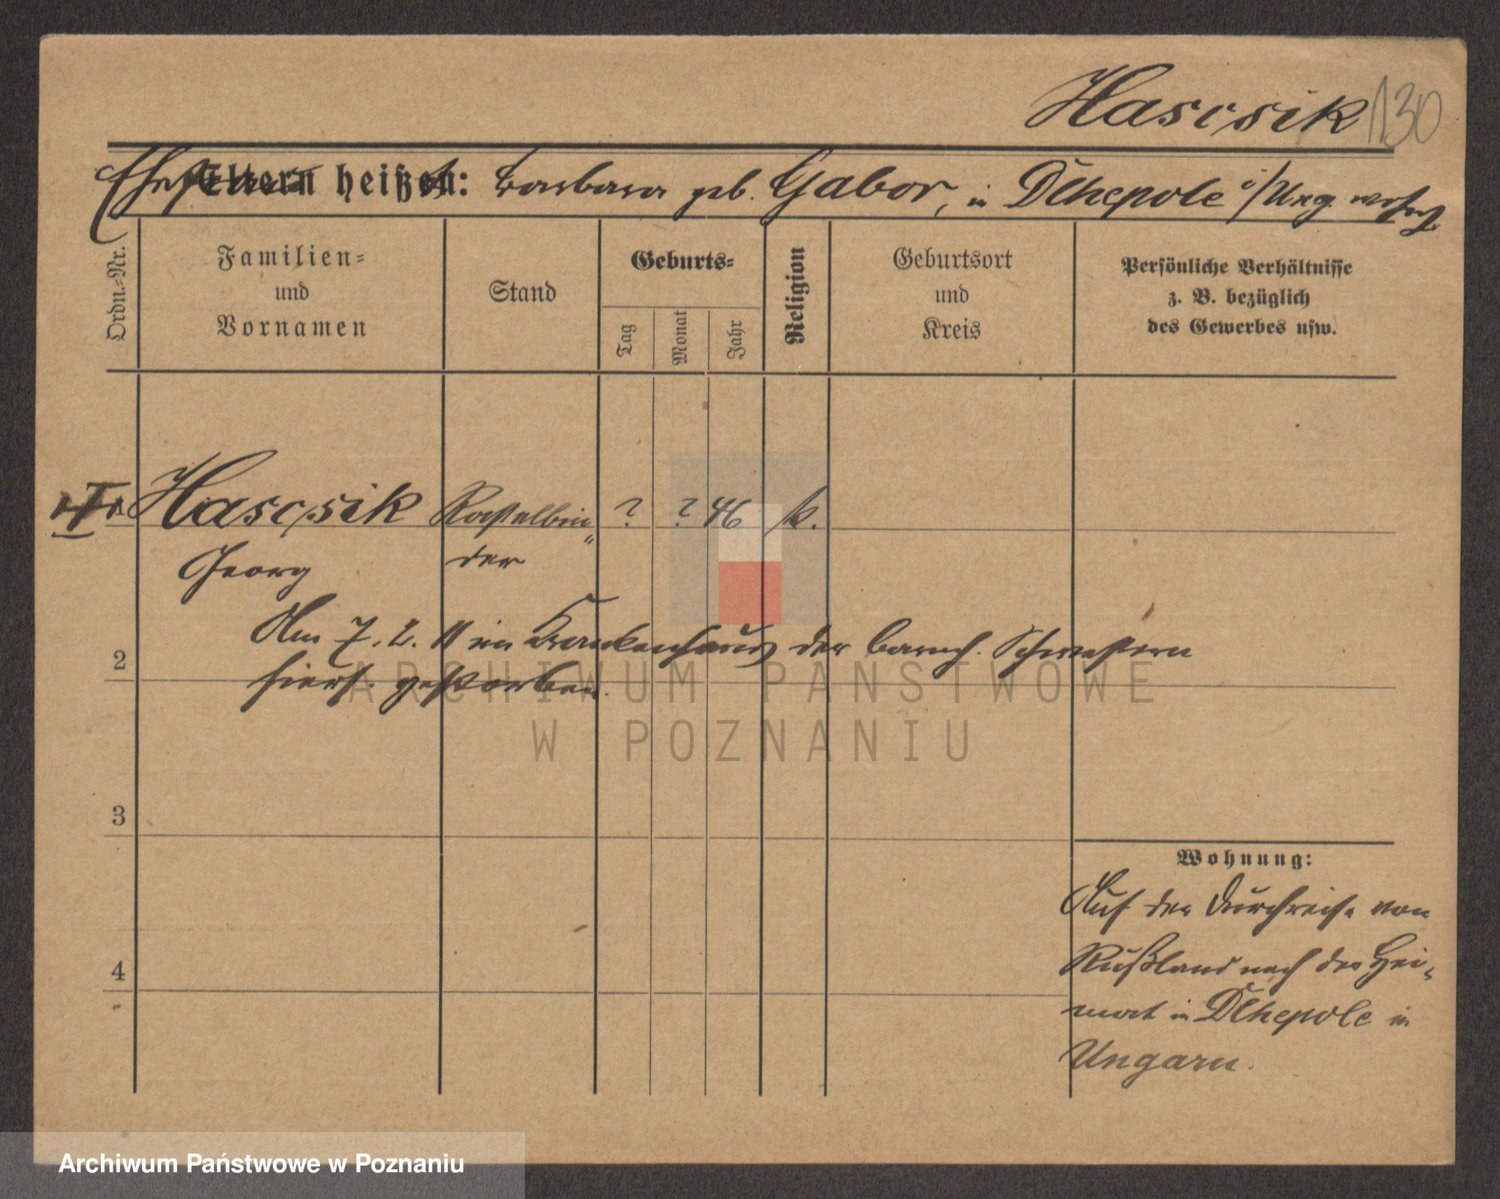 Hascsik 130
Ehefrau heißt: Barbara geb. Gabor, in Dlhepole i/Ung. wohnh.
Ordn.-Nr.
Familien-
und
Vornamen
Stand
Geburts-
Tag
Monat
Jahr
Religion
Geburtsort
und
Kreis
Persönliche Verhältnisse
z. B. bezüglich
des Gewerbes usw.
Hascsik Rastelbin- ? ? 46 k.
Georg der
Am 7. 2. 11 im Krankenhaus der barmh. Schwestern
2
hiers. gestorben.
3
4
Wohnung:
Auf der Durchreise von
Rußland nach der Hei-
mat in Dlhepole in
Ungarn.
ARCHIWUM PAŃSTWOWE
W POZNANIU
Archiwum Państwowe w Poznaniu